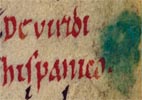 De viridi
hispanico.